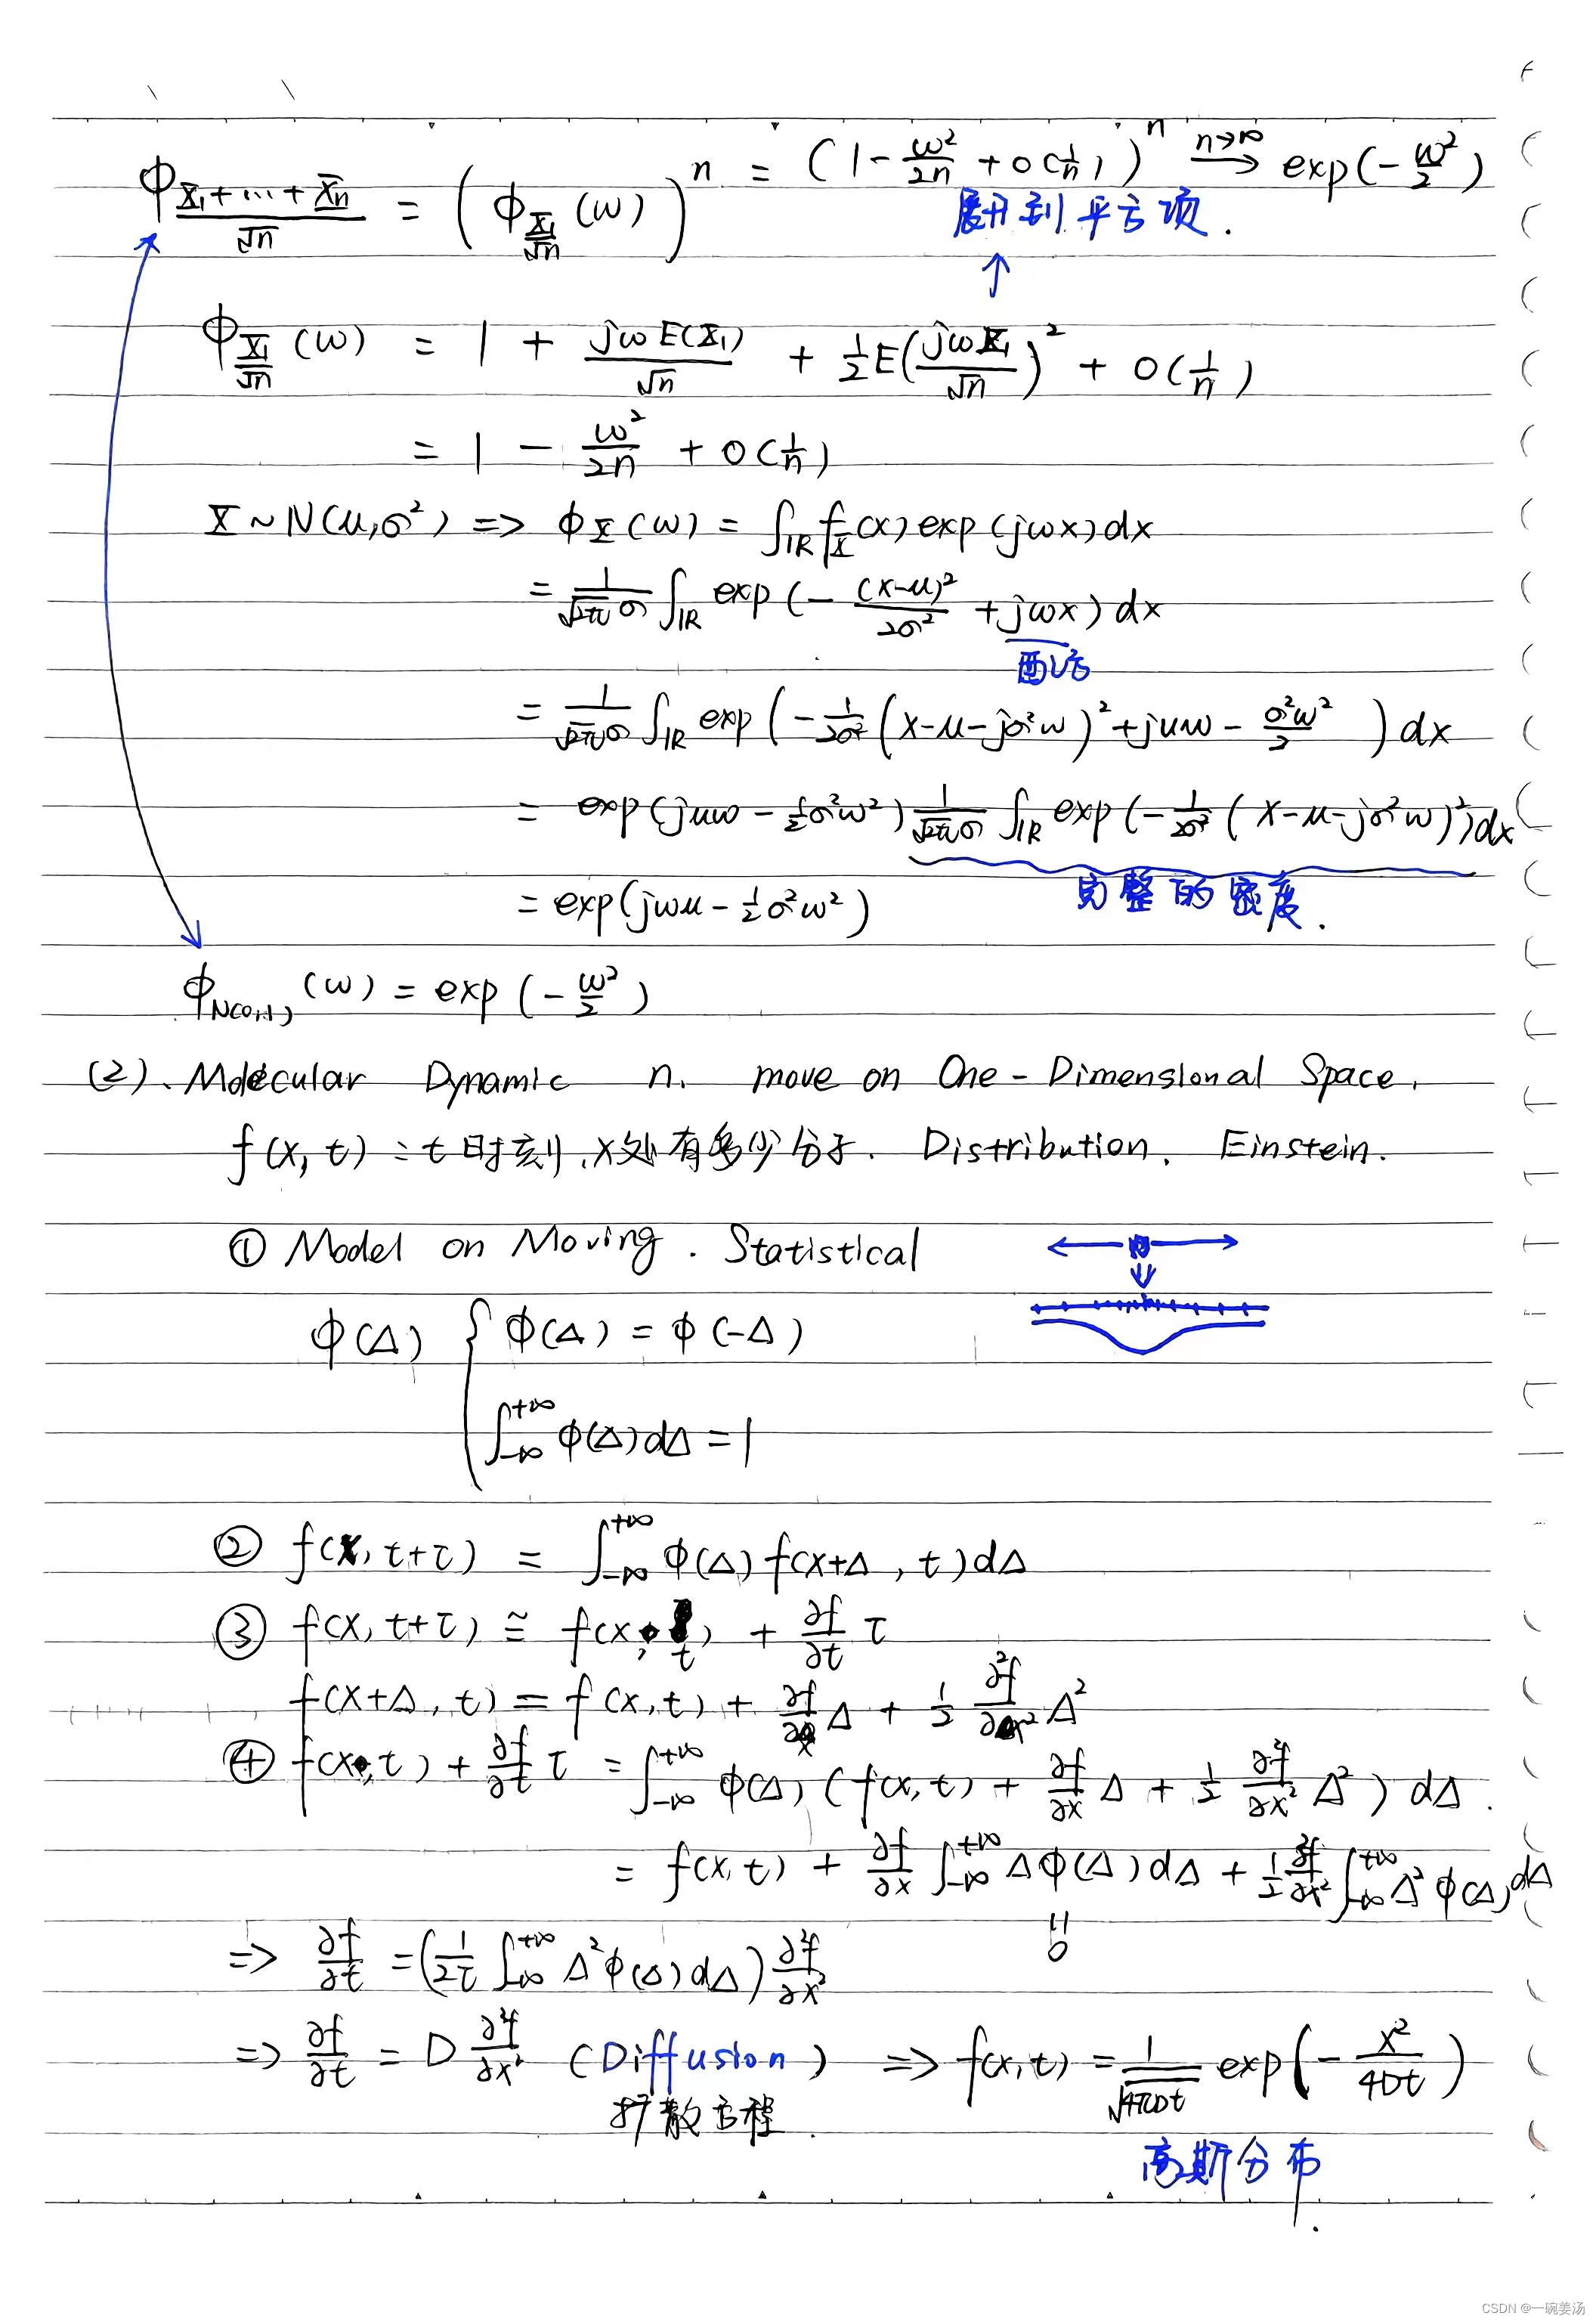 ϕ_{(X₁+⋯+Xₙ)/√n} = (ϕ_{X₁/√n}(ω))ⁿ = (1 - ω²/2n + o(1/n))ⁿ →(n→∞) exp(-ω²/2)
展开到平方项.
ϕ_{X₁/√n}(ω) = 1 + jωE(X₁)/√n + ½E(jωX₁/√n)² + o(1/n)
= 1 - ω²/2n + o(1/n)
X ~ N(μ,σ²) => ϕ_X(ω) = ∫_ℝ f_X(x) exp(jωx)dx
= 1/(√2π σ) ∫_ℝ exp(-(x-μ)²/2σ² + jωx)dx
配方
= 1/(√2π σ) ∫_ℝ exp(-1/2σ² (x-μ-jσ²ω)² + jμω - σ²ω²/2) dx
= exp(jμω - ½σ²ω²) 1/(√2π σ) ∫_ℝ exp(-1/2σ² (x-μ-jσ²ω)²)dx
完整的密度.
= exp(jωμ - ½σ²ω²)
ϕ_{N(0,1)}(ω) = exp(-ω²/2)
(2). Molecular Dynamic n. move on One-Dimensional Space.
f(x,t) : t时刻,x处有多少分子. Distribution. Einstein.
① Model on Moving. Statistical
ϕ(Δ) { ϕ(Δ) = ϕ(-Δ)
∫_{-∞}^{+∞} ϕ(Δ)dΔ = 1
② f(x, t+τ) = ∫_{-∞}^{+∞} ϕ(Δ) f(x+Δ, t)dΔ
③ f(x, t+τ) ≅ f(x, t) + ∂f/∂t τ
f(x+Δ, t) = f(x,t) + ∂f/∂x Δ + ½ ∂²f/∂x² Δ²
④ f(x,t) + ∂f/∂t τ = ∫_{-∞}^{+∞} ϕ(Δ)(f(x,t) + ∂f/∂x Δ + ½ ∂²f/∂x² Δ²) dΔ.
= f(x,t) + ∂f/∂x ∫_{-∞}^{+∞} Δϕ(Δ)dΔ + ½ ∂²f/∂x² ∫_{-∞}^{+∞} Δ²ϕ(Δ)dΔ
=
0
=> ∂f/∂t = (1/2τ ∫_{-∞}^{+∞} Δ²ϕ(Δ)dΔ) ∂²f/∂x²
=> ∂f/∂t = D ∂²f/∂x² (Diffusion) => f(x,t) = 1/√4πDt exp(-x²/4Dt)
扩散方程.
高斯分布.
CSDN @一碗姜汤